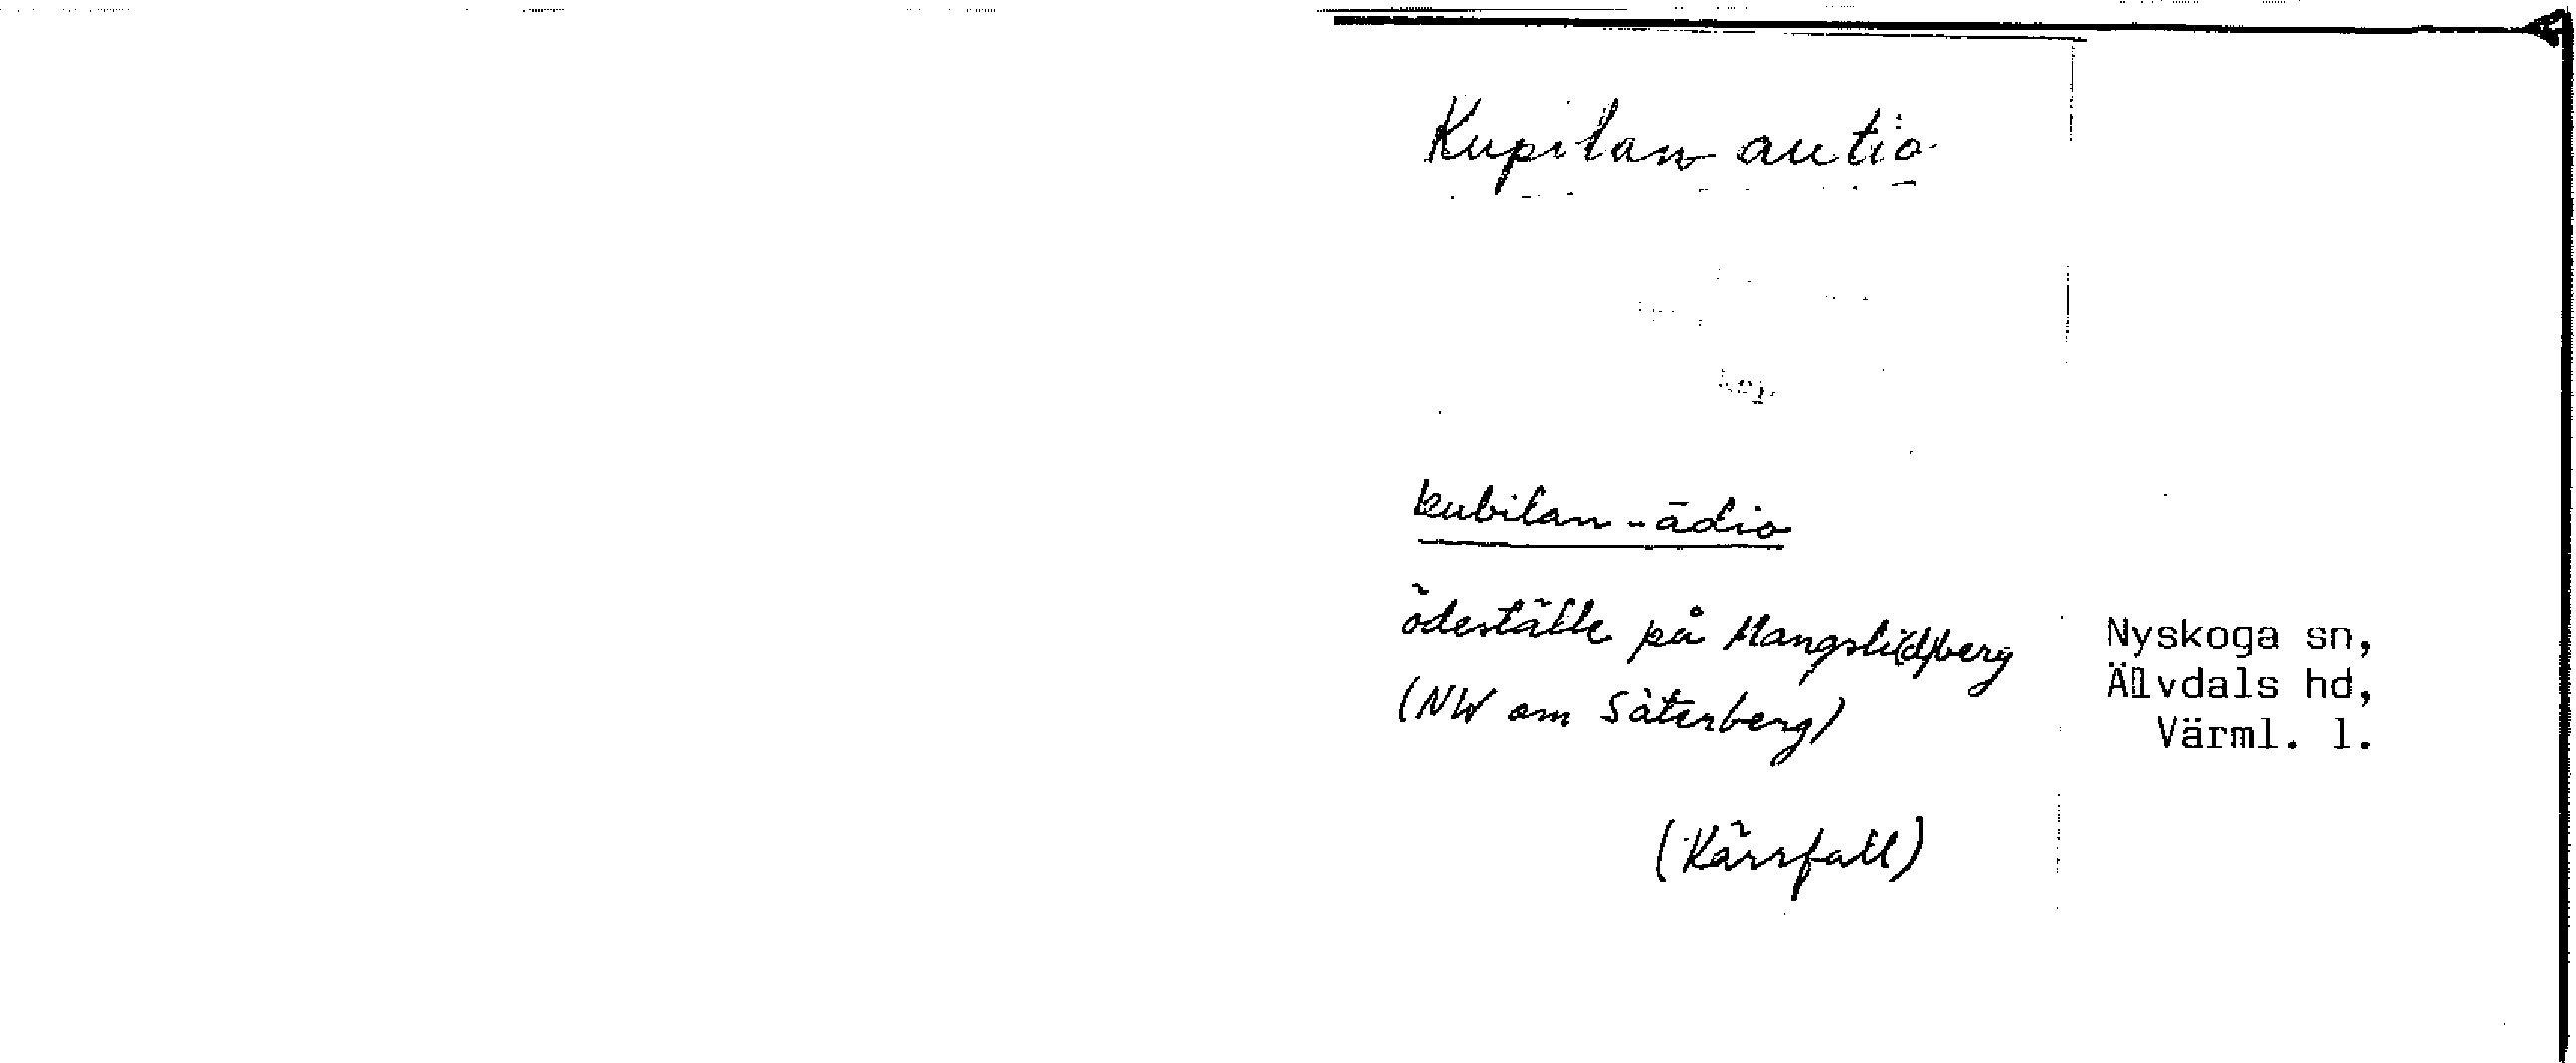 Kupilan autio
kubilan-ādio
ödeställe på Mangsli(d)berg
(NW om Säterberg)
(Kärrfall)
Nyskoga sn,
Älvdals hd,
Värml. l.